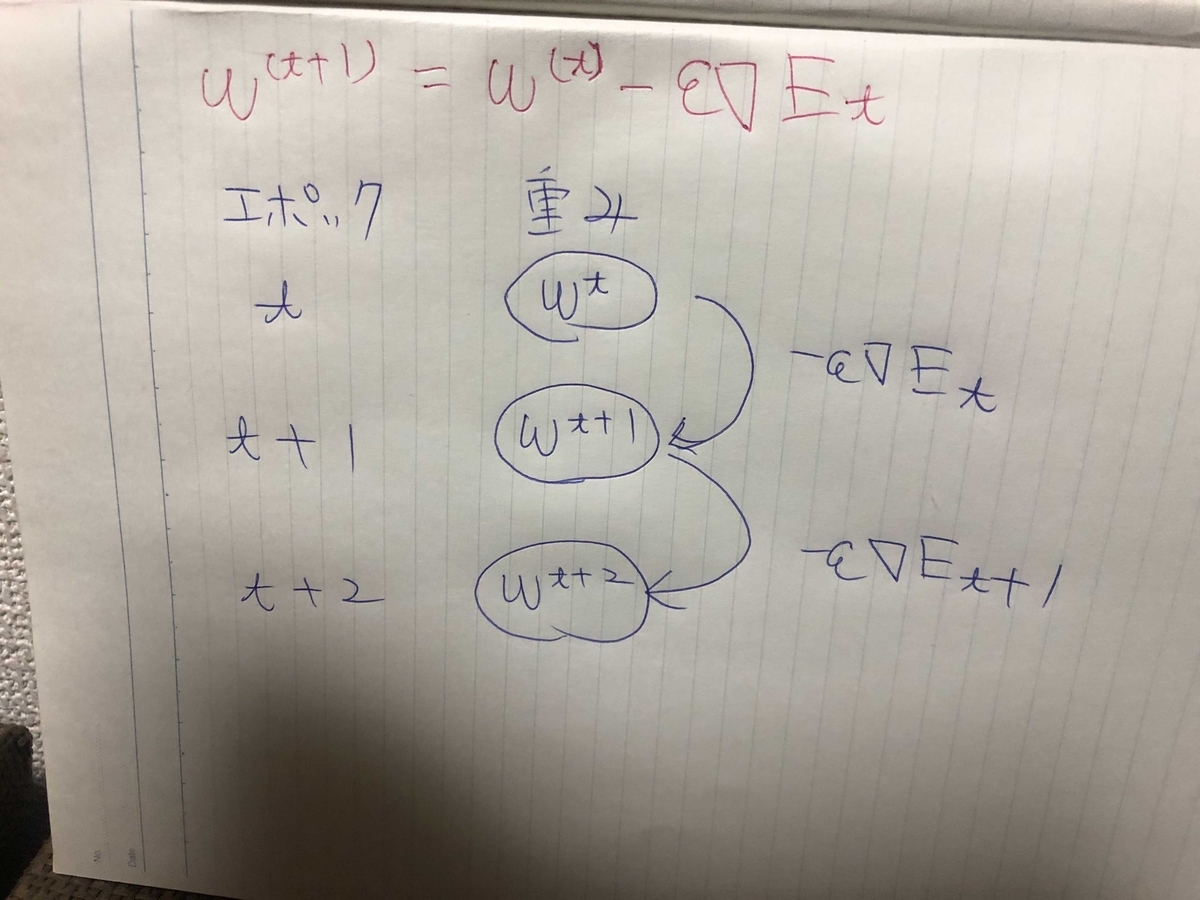 w^(t+1) = w^(t) - ε∇E_t
エポック 重み
t w^t
-ε∇E_t
t+1 w^t+1
-ε∇E_t+1
t+2 w^t+2
No.
Date